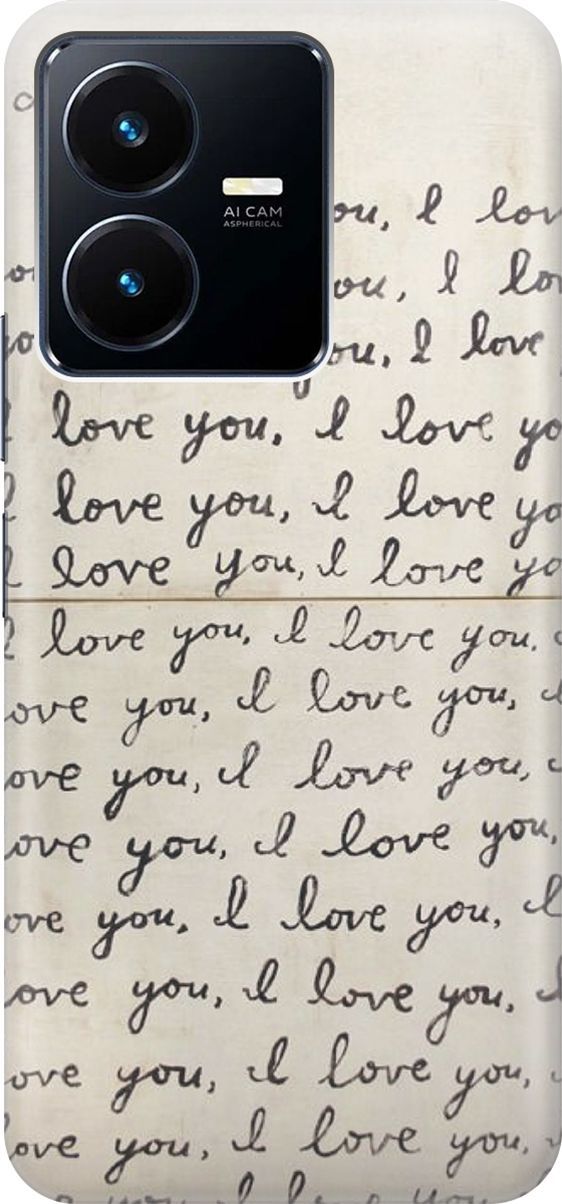 AI CAM
ASPHERICAL
ou, I lov
ou, I lo
you, I love
I love you, I love yo
I love you, I love yo
I love you, I love yo
I love you, I love you,
ove you, I love you,
ove you, I love you,
ove you, I love you,
ove you, I love you, I
ove you, I love you, I
ove you, I love you,
ove you, I love you,